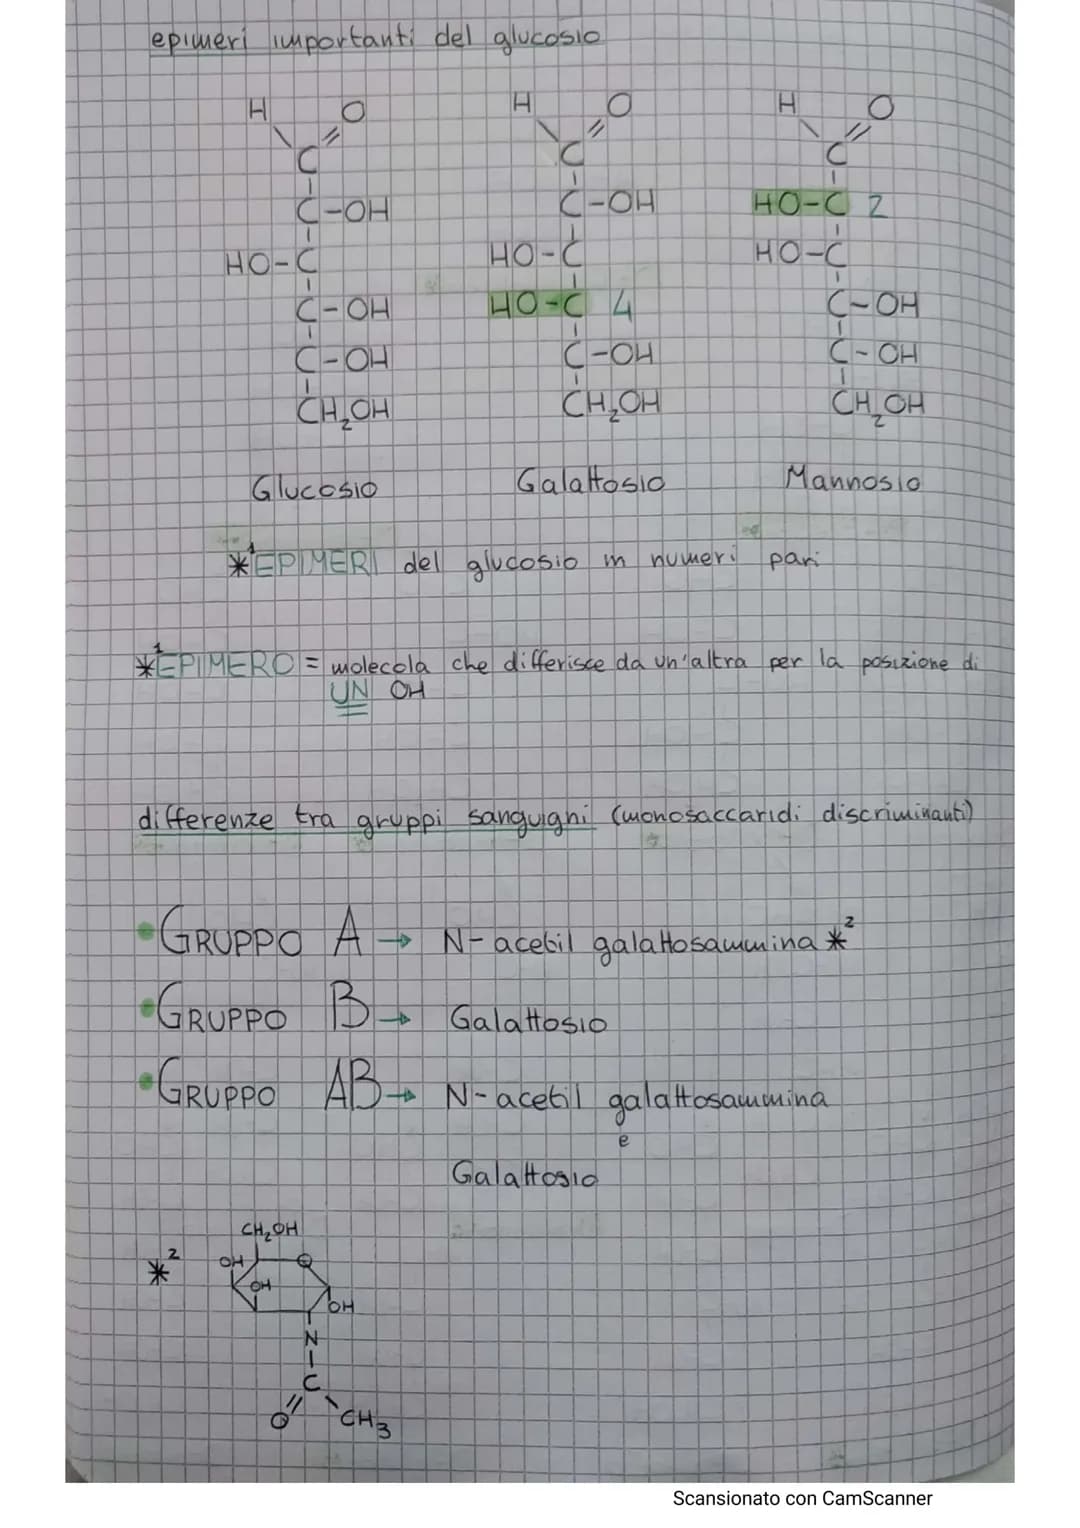 epimeri importanti del glucosio
H O H O H O
C C C
C-OH C-OH HO-C 2
HO-C HO-C HO-C
C-OH HO-C 4 C-OH
C-OH C-OH C-OH
CH₂OH CH₂OH CH₂OH
Glucosio Galattosio Mannosio
*¹EPIMERI del glucosio in numeri pari
*¹EPIMERO = molecola che differisce da un'altra per la posizione di
UN OH
differenze tra gruppi sanguigni (monosaccaridi discriminanti)
•GRUPPO A → N-acetil galattosammina *²
•GRUPPO B → Galattosio
•GRUPPO AB → N-acetil galattosammina
e
Galattosio
CH₂OH
*² OH O
OH
OH
N
C
O CH3
Scansionato con CamScanner